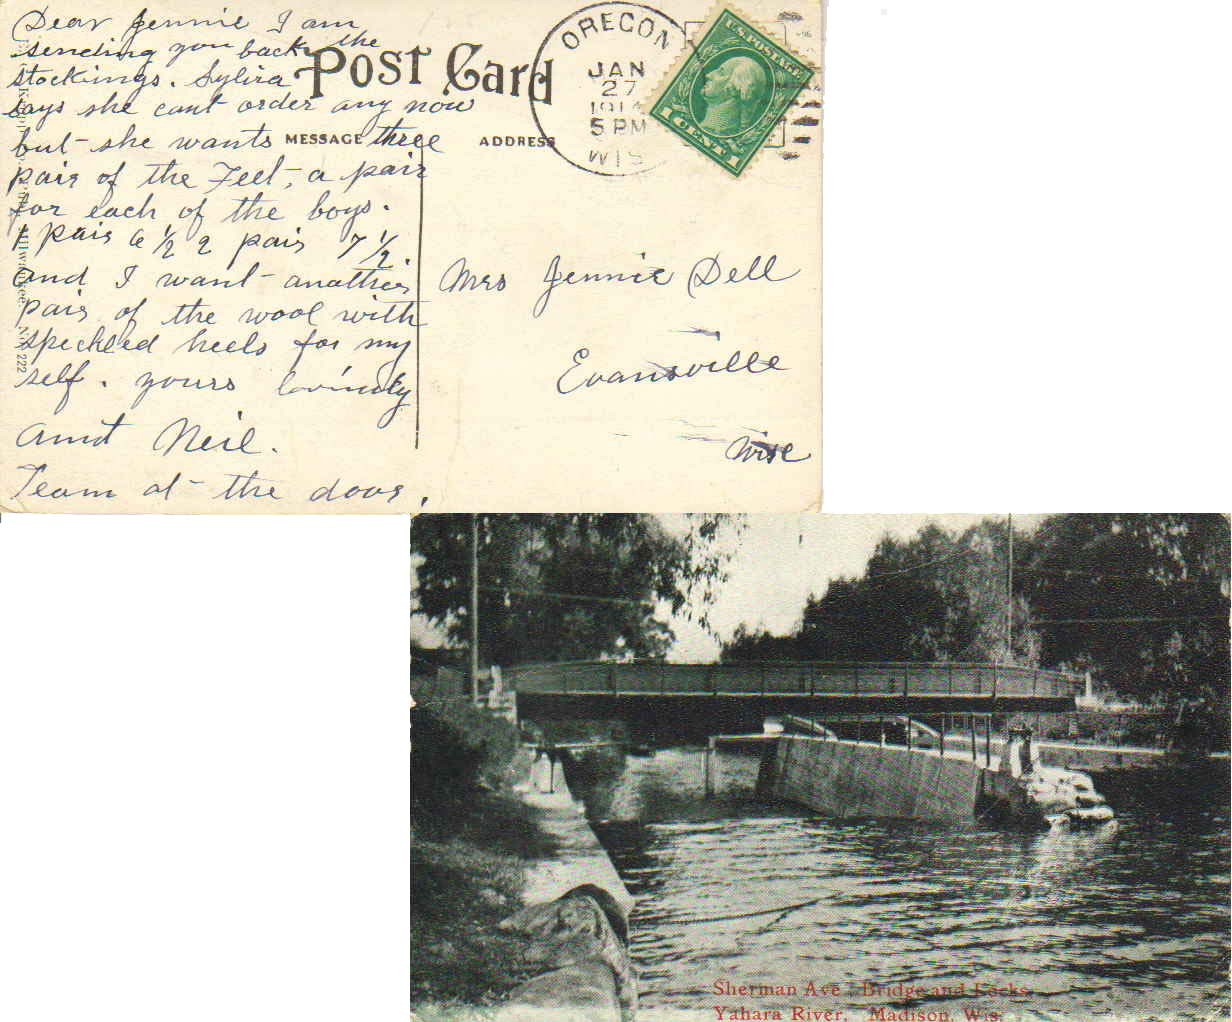 Dear Jennie I am
sending you back the
stockings. Sylira
says she cant order any now
but she wants three
pair of the Feet, a pair
for each of the boys.
1 pair 6 1/2 2 pair 7 1/2.
and I want another
pair of the wool with
speckled heels for my
self. yours lovingly
aunt Neil.
Team at the door.
POST CARD
MESSAGE
ADDRESS
OREGON
JAN
27
1914
5 PM
WIS
U.S. POSTAGE
1 CENT 1
Mrs Jennie Dell
Evansville
Wisc
Milwaukee. No. 222
Sherman Ave. Bridge and Locks,
Yahara River, Madison, Wis.